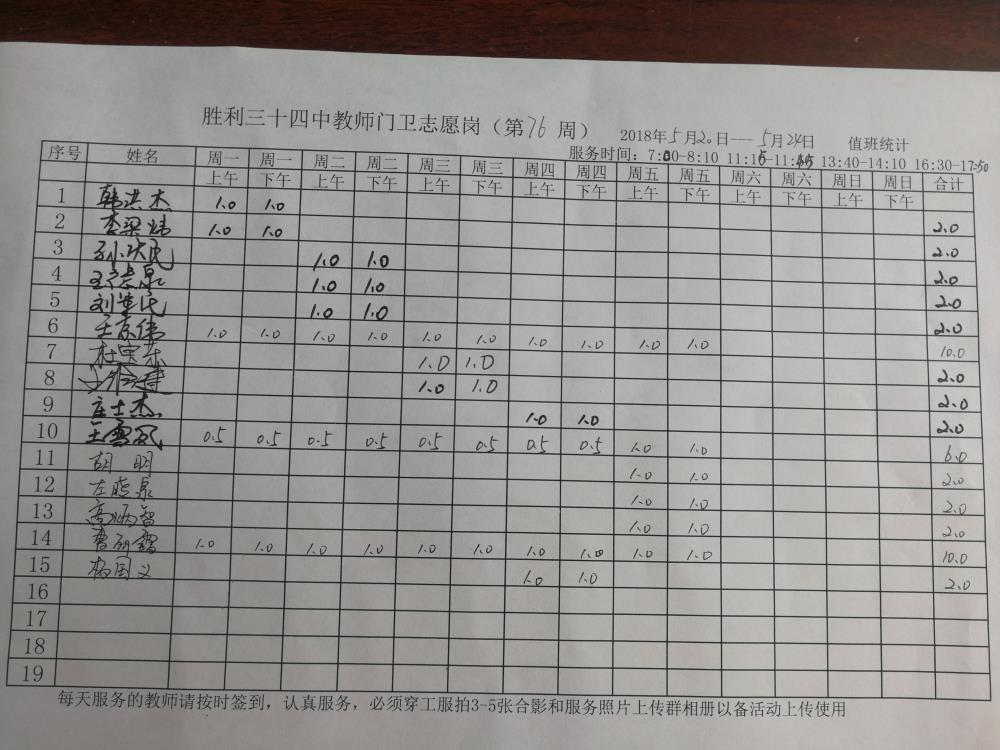 胜利三十四中教师门卫志愿岗（第76 周） 2018年5月20日---5月24日 值班统计
服务时间：7:00-8:10 11:15-11:45 13:40-14:10 16:30-17:50
序号 姓名 周一 周一 周二 周二 周三 周三 周四 周四 周五 周五 周六 周六 周日 周日 合计
上午 下午 上午 下午 上午 下午 上午 下午 上午 下午 上午 下午 上午 下午
1 韩洪杰 1.0 1.0
2 李梁炜 1.0 1.0 2.0
3 1.0 1.0 2.0
4 1.0 1.0 2.0
5 1.0 1.0 2.0
6 王京伟 1.0 1.0 1.0 1.0 1.0 1.0 1.0 1.0 1.0 1.0 2.0
7 1.0 1.0 10.0
8 1.0 1.0 2.0
9 庄士杰 1.0 1.0 2.0
10 王雪 0.5 0.5 0.5 0.5 0.5 0.5 0.5 0.5 1.0 1.0 2.0
11 胡明 1.0 1.0 6.0
12 左晓泉 1.0 1.0 2.0
13 高炳智 1.0 1.0 2.0
14 曹 1.0 1.0 1.0 1.0 1.0 1.0 1.0 1.0 1.0 1.0 2.0
15 杨国义 1.0 1.0 10.0
16 2.0
17
18
19
每天服务的教师请按时签到，认真服务，必须穿工服拍3-5张合影和服务照片上传群相册以备活动上传使用